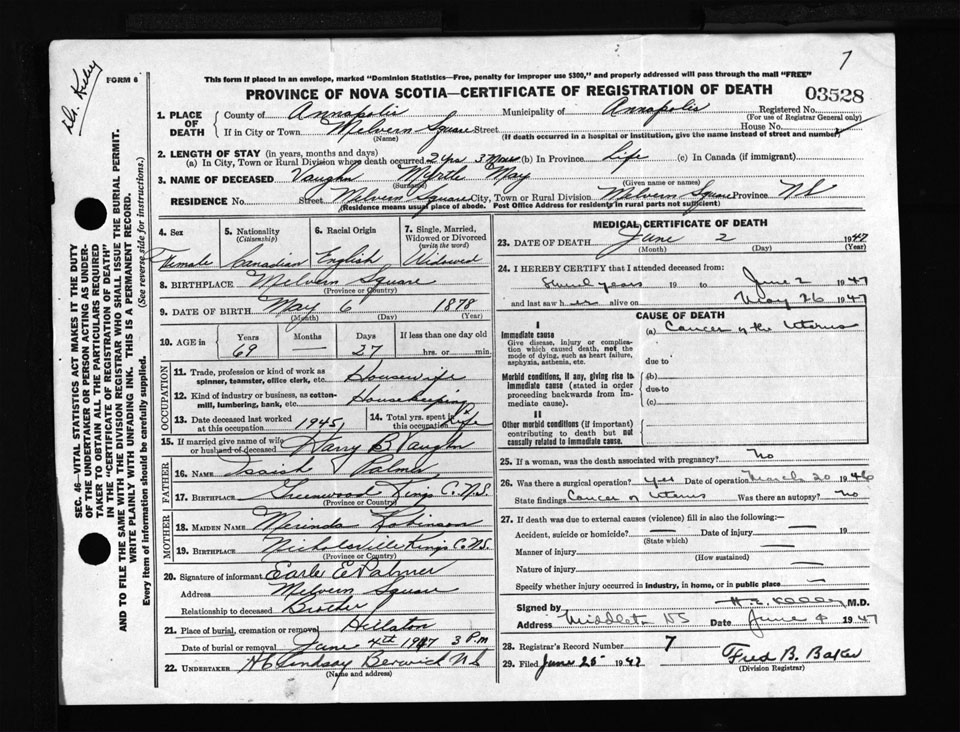 Dr. Kelley
7
FORM 6
This form if placed in an envelope, marked "Dominion Statistics—Free, penalty for improper use $300," and properly addressed will pass through the mail "FREE"
PROVINCE OF NOVA SCOTIA—CERTIFICATE OF REGISTRATION OF DEATH 03528
1. PLACE OF DEATH County of Annapolis Municipality of Annapolis Registered No.
(For use of Registrar General only)
If in City or Town Melvern Square Street House No.
(Name) (If death occurred in a hospital or institution, give the name instead of street and number)
2. LENGTH OF STAY (in years, months and days)
(a) In City, Town or Rural Division where death occurred 2 yrs 3 mos (b) In Province Life (c) In Canada (if immigrant)
3. NAME OF DECEASED Vaughn Myrtle May
(Surname) (Given name or names)
RESIDENCE No. Street Melvern Square City, Town or Rural Division Melvern Square Province N.S
(Residence means usual place of abode. Post Office Address for residents in rural parts not sufficient)
4. Sex 5. Nationality (Citizenship) 6. Racial Origin 7. Single, Married, Widowed or Divorced (write the word)
Female Canadian English Widowed
8. BIRTHPLACE Melvern Square
(Province or Country)
9. DATE OF BIRTH May 6 1878
(Month) (Day) (Year)
10. AGE in Years Months Days If less than one day old
69 — 27 hrs. or min.
OCCUPATION
11. Trade, profession or kind of work as spinner, teamster, office clerk, etc. Housewife
12. Kind of industry or business, as cotton-mill, lumbering, bank, etc. Housekeeping
13. Date deceased last worked at this occupation 1945 14. Total yrs. spent in this occupation Life
15. If married give name of wife or husband of deceased Harry B Vaughn
FATHER
16. NAME Issiah Palmer
17. BIRTHPLACE Greenwood Kings C. N.S.
MOTHER
18. MAIDEN NAME Merinda Robinson
19. BIRTHPLACE Nicholsville Kings C. N.S.
(Province or Country)
20. Signature of informant Earle E Palmer
Address Melvern Square
Relationship to deceased Brother
21. Place of burial, cremation or removal Hillaton
Date of burial or removal June 4th 1947 3 P.m
22. UNDERTAKER Lindsay Berwick N S
(Name and address)
MEDICAL CERTIFICATE OF DEATH
23. DATE OF DEATH June 2 1947
(Month) (Day) (Year)
24. I HEREBY CERTIFY that I attended deceased from:
years 19 to June 2 1947
and last saw her alive on May 26 1947
CAUSE OF DEATH
I
Immediate cause (a) Cancer of the Uterus
Give disease, injury or complication which caused death, not the mode of dying, such as heart failure, asphyxia, asthenia, etc.
due to
Morbid conditions, if any, giving rise to immediate cause (stated in order proceeding backwards from immediate cause).
(b)
due to
(c)
II
Other morbid conditions (if important) contributing to death but not causally related to immediate cause.
25. If a woman, was the death associated with pregnancy? No
26. Was there a surgical operation? yes Date of operation March 20 1946
State findings Cancer of Uterus Was there an autopsy? No
27. If death was due to external causes (violence) fill in also the following:—
Accident, suicide or homicide? — Date of injury — 19
(State which)
Manner of injury —
(How sustained)
Nature of injury —
Specify whether injury occurred in industry, in home, or in public place —
Signed by H E Kelley M.D.
Address Middleton NS Date June 4 1947
28. Registrar's Record Number 7
29. Filed June 25 1947 Fred B. Baker
(Division Registrar)
SEC. 46—VITAL STATISTICS ACT MAKES IT THE DUTY
OF THE UNDERTAKER OR PERSON ACTING AS UNDER-
TAKER TO OBTAIN ALL THE PARTICULARS REQUIRED
IN THE "CERTIFICATE OF REGISTRATION OF DEATH"
AND TO FILE THE SAME WITH THE DIVISION REGISTRAR WHO SHALL ISSUE THE BURIAL PERMIT.
WRITE PLAINLY WITH UNFADING INK. THIS IS A PERMANENT RECORD.
Every item of information should be carefully supplied. (See reverse side for instructions.)